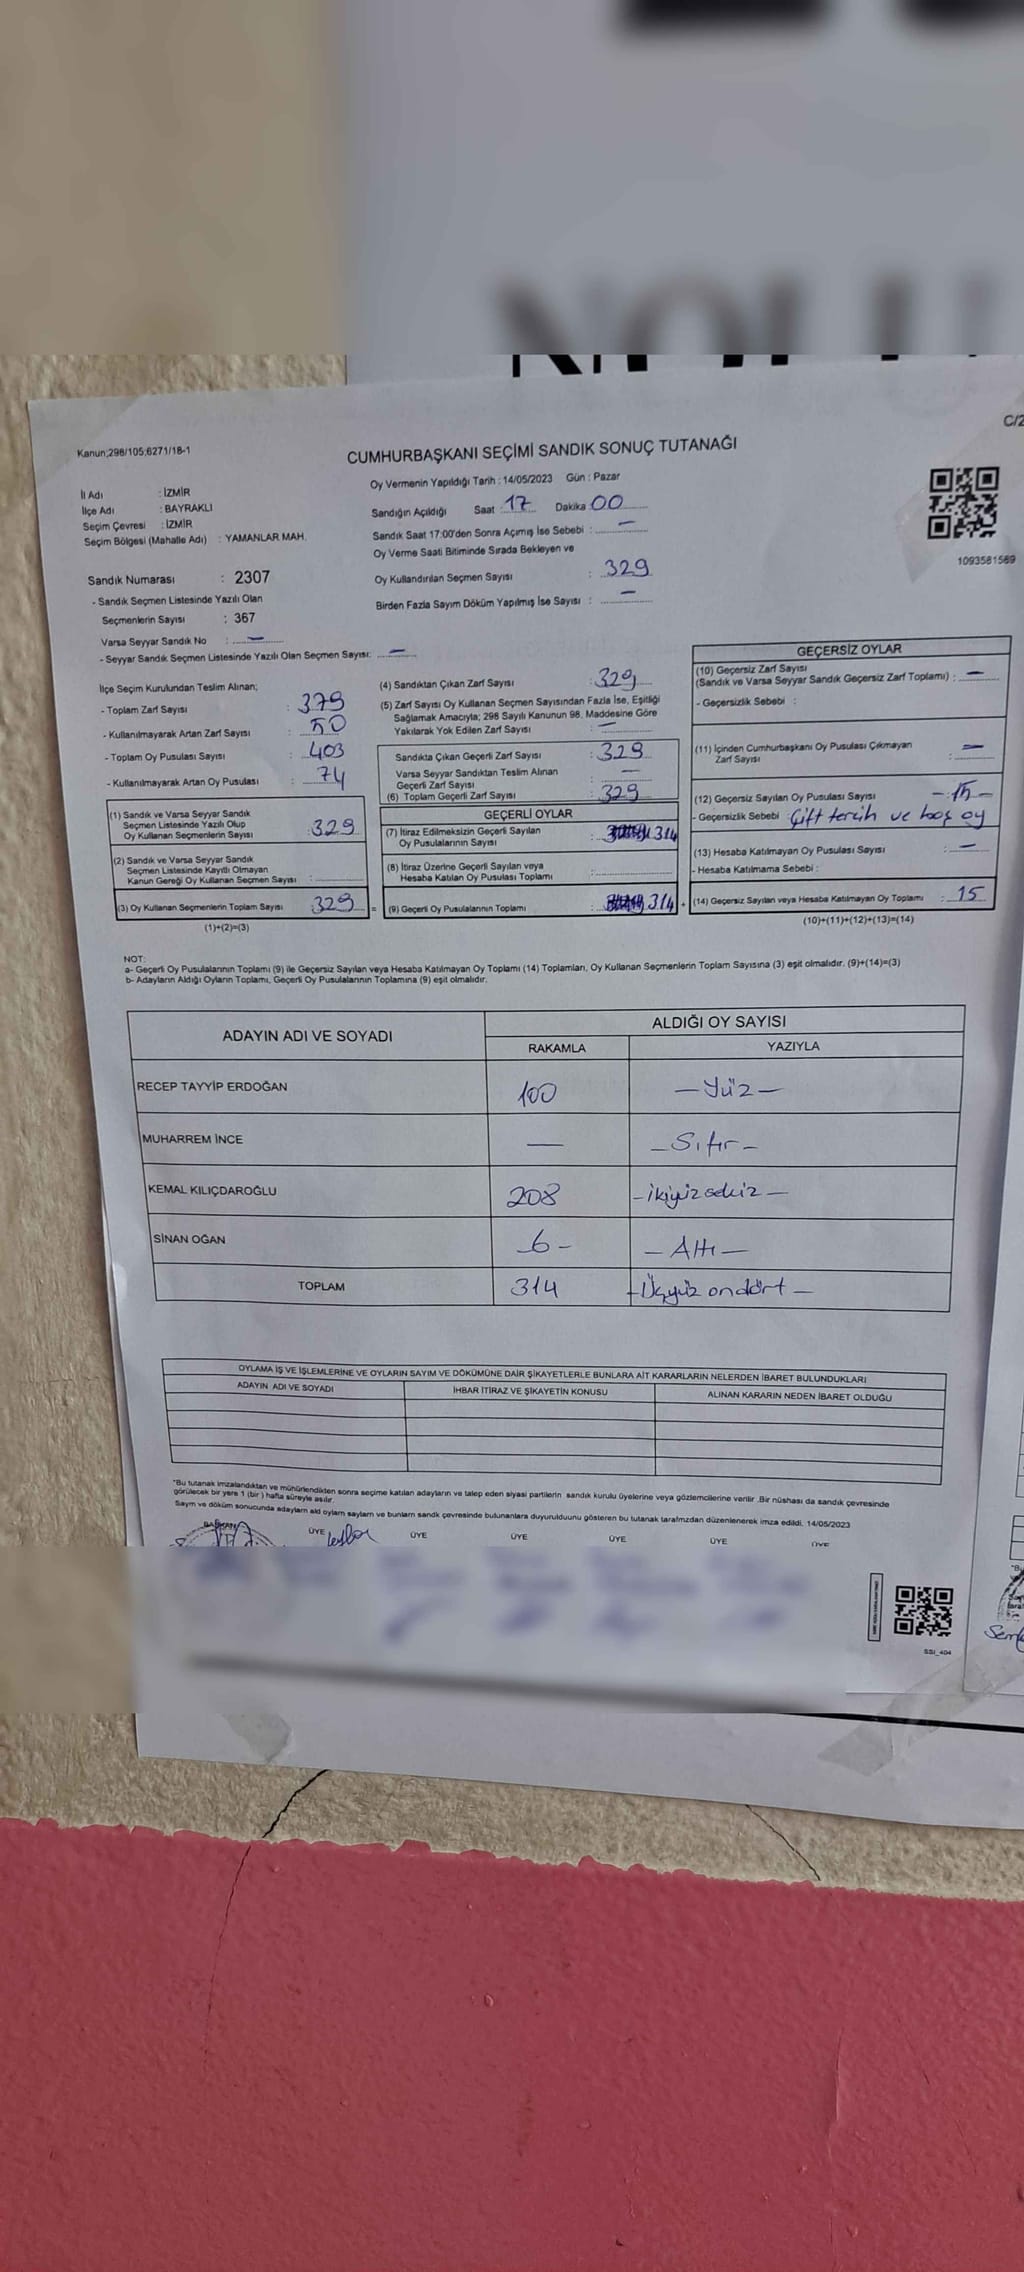 C/2
Kanun;298/105;6271/18-1
CUMHURBAŞKANI SEÇİMİ SANDIK SONUÇ TUTANAĞI
Oy Vermenin Yapıldığı Tarih : 14/05/2023 Gün : Pazar
İl Adı : İZMİR
İlçe Adı : BAYRAKLI
Seçim Çevresi : İZMİR
Seçim Bölgesi (Mahalle Adı) : YAMANLAR MAH.
Sandığın Açıldığı Saat : 17 Dakika 00
Sandık Saat 17:00'den Sonra Açımış İse Sebebi : —
Oy Verme Saati Bitiminde Sırada Bekleyen ve
Oy Kullandırılan Seçmen Sayısı : 329
Birden Fazla Sayım Döküm Yapılmış İse Sayısı : —
1093581569
Sandık Numarası : 2307
- Sandık Seçmen Listesinde Yazılı Olan
Seçmenlerin Sayısı : 367
Varsa Seyyar Sandık No : —
- Seyyar Sandık Seçmen Listesinde Yazılı Olan Seçmen Sayısı: —
İlçe Seçim Kurulundan Teslim Alınan;
- Toplam Zarf Sayısı : 379
- Kullanılmayarak Artan Zarf Sayısı : 50
- Toplam Oy Pusulası Sayısı : 403
- Kullanılmayarak Artan Oy Pusulası : 74
(1) Sandık ve Varsa Seyyar Sandık
Seçmen Listesinde Yazılı Olup
Oy Kullanan Seçmenlerin Sayısı : 329
(2) Sandık ve Varsa Seyyar Sandık
Seçmen Listesinde Kayıtlı Olmayan
Kanun Gereği Oy Kullanan Seçmen Sayısı :
(3) Oy Kullanan Seçmenlerin Toplam Sayısı 329 =
(1)+(2)=(3)
(4) Sandıktan Çıkan Zarf Sayısı : 329
(5) Zarf Sayısı Oy Kullanan Seçmen Sayısından Fazla İse, Eşitliği
Sağlamak Amacıyla; 298 Sayılı Kanunun 98. Maddesine Göre
Yakılarak Yok Edilen Zarf Sayısı : —
Sandıkta Çıkan Geçerli Zarf Sayısı : 329
Varsa Seyyar Sandıktan Teslim Alınan
Geçerli Zarf Sayısı : —
(6) Toplam Geçerli Zarf Sayısı : 329
GEÇERLİ OYLAR
(7) İtiraz Edilmeksizin Geçerli Sayılan
Oy Pusulalarının Sayısı : 314
(8) İtiraz Üzerine Geçerli Sayılan veya
Hesaba Katılan Oy Pusulası Toplamı :
(9) Geçerli Oy Pusulalarının Toplamı : 314 +
GEÇERSİZ OYLAR
(10) Geçersiz Zarf Sayısı
(Sandık ve Varsa Seyyar Sandık Geçersiz Zarf Toplamı) : —
- Geçersizlik Sebebi :
(11) İçinden Cumhurbaşkanı Oy Pusulası Çıkmayan
Zarf Sayısı : —
(12) Geçersiz Sayılan Oy Pusulası Sayısı – 15 –
- Geçersizlik Sebebi : Çift tercih ve boş oy
(13) Hesaba Katılmayan Oy Pusulası Sayısı : —
- Hesaba Katılmama Sebebi :
(14) Geçersiz Sayılan veya Hesaba Katılmayan Oy Toplamı : 15
(10)+(11)+(12)+(13)=(14)
NOT:
a- Geçerli Oy Pusulalarının Toplamı (9) ile Geçersiz Sayılan veya Hesaba Katılmayan Oy Toplamı (14) Toplamları, Oy Kullanan Seçmenlerin Toplam Sayısına (3) eşit olmalıdır. (9)+(14)=(3)
b- Adayların Aldığı Oyların Toplamı, Geçerli Oy Pusulalarının Toplamına (9) eşit olmalıdır.
ADAYIN ADI VE SOYADI ALDIĞI OY SAYISI
RAKAMLA YAZIYLA
RECEP TAYYİP ERDOĞAN 100 – Yüz –
MUHARREM İNCE — – Sıfır –
KEMAL KILIÇDAROĞLU 208 – ikiyüzsekiz –
SİNAN OĞAN – 6 – – Altı –
TOPLAM 314 – Üçyüz ondört –
OYLAMA İŞ VE İŞLEMLERİNE VE OYLARIN SAYIM VE DÖKÜMÜNE DAİR ŞİKAYETLERLE BUNLARA AİT KARARLARIN NELERDEN İBARET BULUNDUKLARI
ADAYIN ADI VE SOYADI İHBAR İTİRAZ VE ŞİKAYETİN KONUSU ALINAN KARARIN NEDEN İBARET OLDUĞU
*Bu tutanak imzalandıktan ve mühürlendikten sonra seçime katılan adayların ve talep eden siyasi partilerin sandık kurulu üyelerine veya gözlemcilerine verilir .Bir nüshası da sandık çevresinde
görülecek bir yere 1 (bir ) hafta süreyle asılır.
Sayım ve döküm sonucunda adayların ald oyların sayların ve bunların sandk çevresinde bulunanlara duyurulduunu gösteren bu tutanak tarafmzdan düzenlenerek imza edildi. 14/05/2023
BAŞKAN ÜYE ÜYE ÜYE ÜYE ÜYE ÜYE
SSI_404